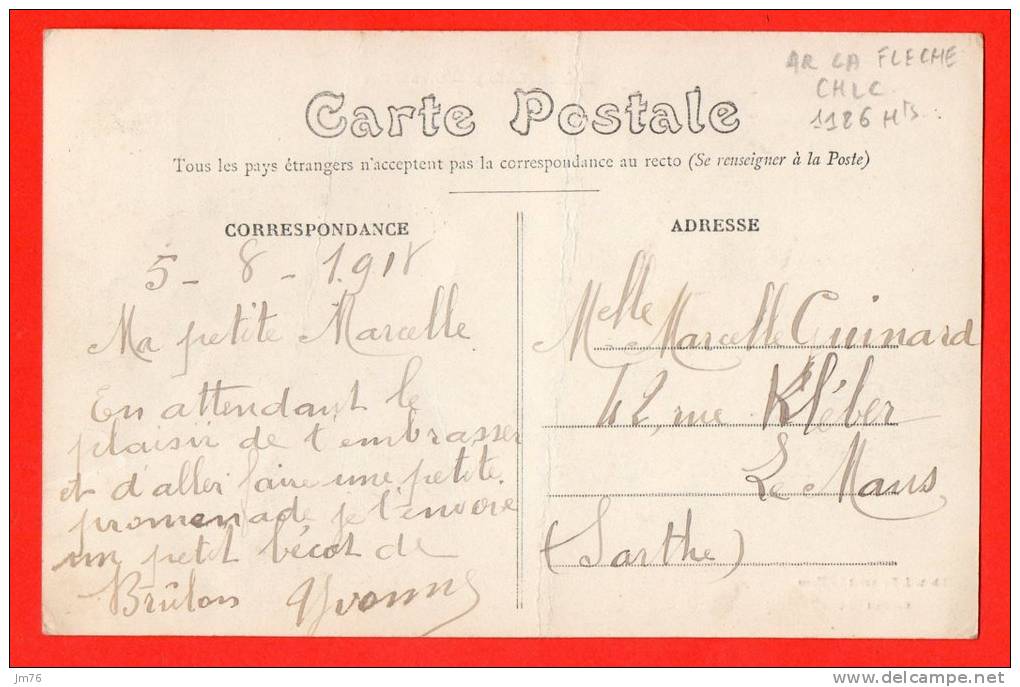 AR LA FLECHE
CHLC
1186 Hts
Carte Postale
Tous les pays étrangers n'acceptent pas la correspondance au recto (Se renseigner à la Poste)
CORRESPONDANCE
5 - 8 - 1918
Ma petite Marcelle
En attendant le
plaisir de t'embrasser
et d'aller faire une petite
promenade je t'envoie
un petit bécot de
Brûlon Yvonne
ADRESSE
Melle Marcelle Guinard
42, rue Kléber
Le Mans
(Sarthe)
jm76
www.delcampe.net